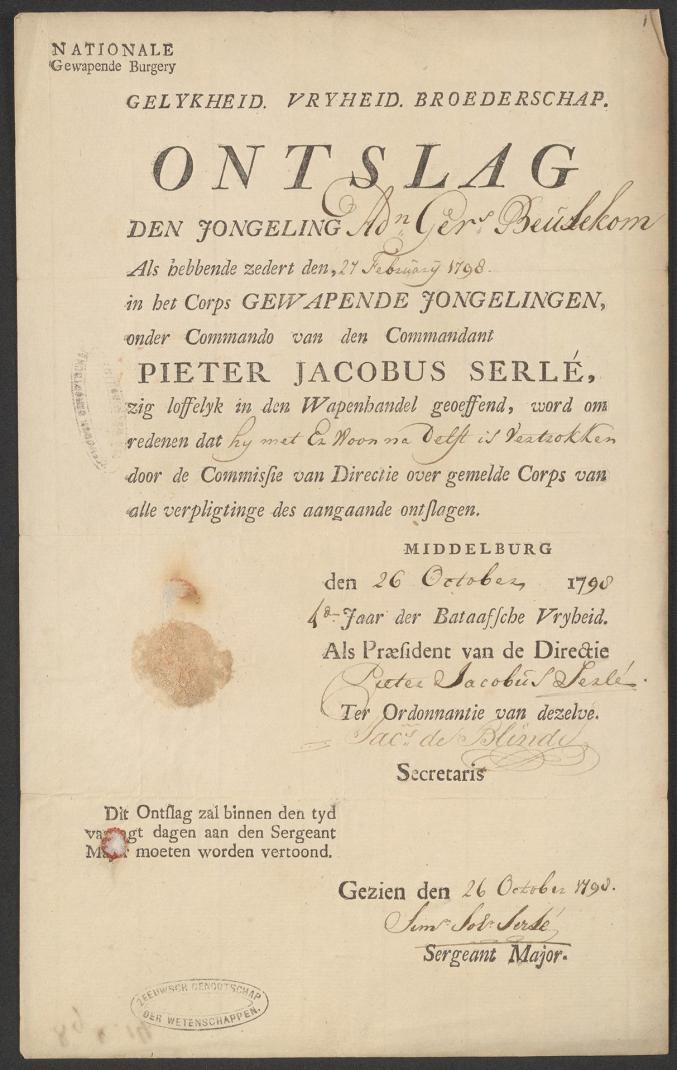 NATIONALE
Gewapende Burgery
GELYKHEID. VRYHEID. BROEDERSCHAP.
ONTSLAG
DEN JONGELING Adn Gers Beusekom
Als hebbende zedert den, 27 February 1798.
in het Corps GEWAPENDE JONGELINGEN,
onder Commando van den Commandant
PIETER JACOBUS SERLÉ,
zig loffelyk in den Wapenhandel geoeffend, word om
redenen dat hy met Er Woon na Delft is Vertrokken
door de Commisſie van Directie over gemelde Corps van
alle verpligtinge des aangaande ontſlagen.
MIDDELBURG
den 26 October 1798
4de Jaar der Bataafſche Vryheid.
Als Præſident van de Directie
Pieter Jacobus Serlé.
Ter Ordonnantie van dezelve.
Jacs de Blinde
Secretaris
Dit Ontſlag zal binnen den tyd
va agt dagen aan den Sergeant
M r moeten worden vertoond.
Gezien den 26 October 1798.
Serlé
Sergeant Major.
ZEEUWSCH GENOOTSCHAP
DER WETENSCHAPPEN.